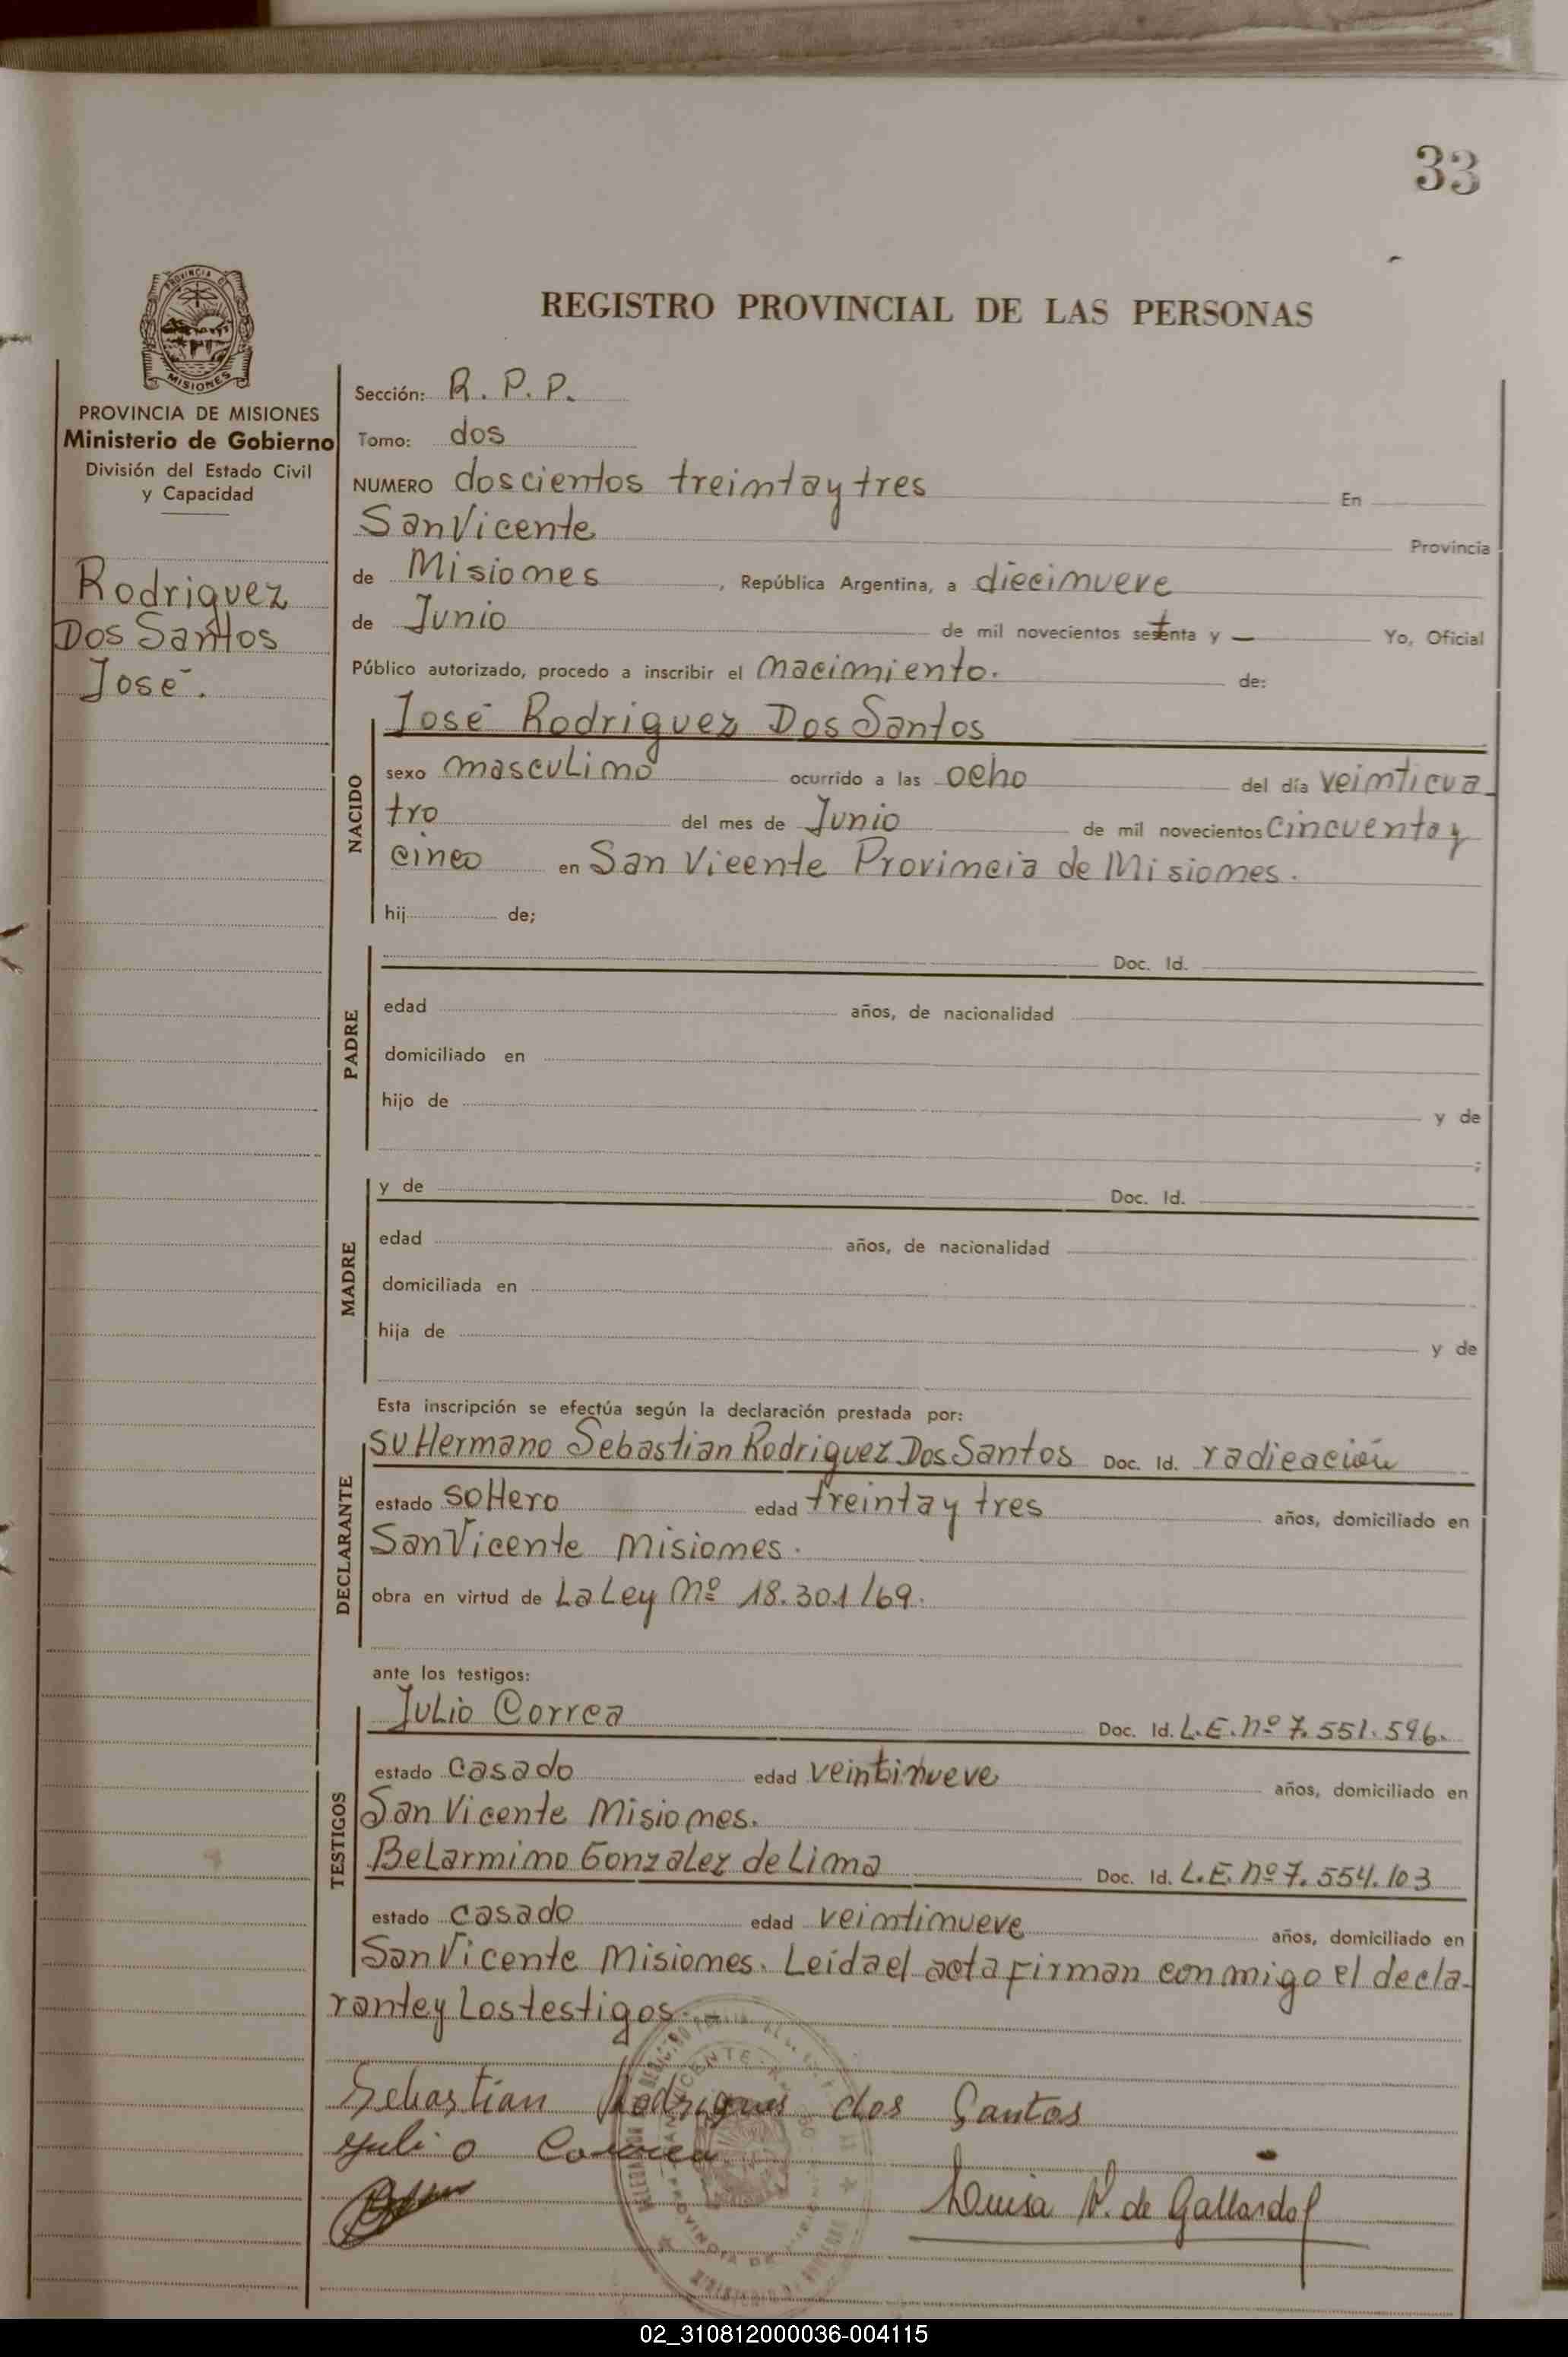 33
REGISTRO PROVINCIAL DE LAS PERSONAS
MISIONES
PROVINCIA DE MISIONES
Ministerio de Gobierno
División del Estado Civil
y Capacidad
Rodriguez
Dos Santos
José.
Sección: R. P. P.
Tomo: dos
NUMERO doscientos treinta y tres En
San Vicente Provincia
de Misiones, República Argentina, a diecinueve
de Junio de mil novecientos setenta y — Yo, Oficial
Público autorizado, procedo a inscribir el nacimiento. de:
NACIDO
José Rodriguez Dos Santos
sexo masculino ocurrido a las ocho del día veinticua
tro del mes de Junio de mil novecientos cincuenta y
cinco en San Vicente Provincia de Misiones.
hij de;
PADRE
Doc. Id.
edad años, de nacionalidad
domiciliado en
hijo de y de
;
MADRE
y de Doc. Id.
edad años, de nacionalidad
domiciliada en
hija de y de
Esta inscripción se efectúa según la declaración prestada por:
DECLARANTE
su Hermano Sebastian Rodriguez Dos Santos Doc. Id. radicación
estado soltero edad treinta y tres años, domiciliado en
San Vicente Misiones.
obra en virtud de La Ley Nº 18.301/69.
ante los testigos:
TESTIGOS
Julio Correa Doc. Id. L.E. nº 7.551.596.
estado casado edad veintinueve años, domiciliado en
San Vicente Misiones.
Belarmino Gonzalez de Lima Doc. Id. L.E. nº 7.554.103
estado casado edad veintinueve años, domiciliado en
San Vicente Misiones. Leida el acta firman conmigo el decla-
rante y Los testigos.
Sebastian Rodrigues dos Santos
Julio Correa
Luisa V. de Gallardo
02_310812000036-004115